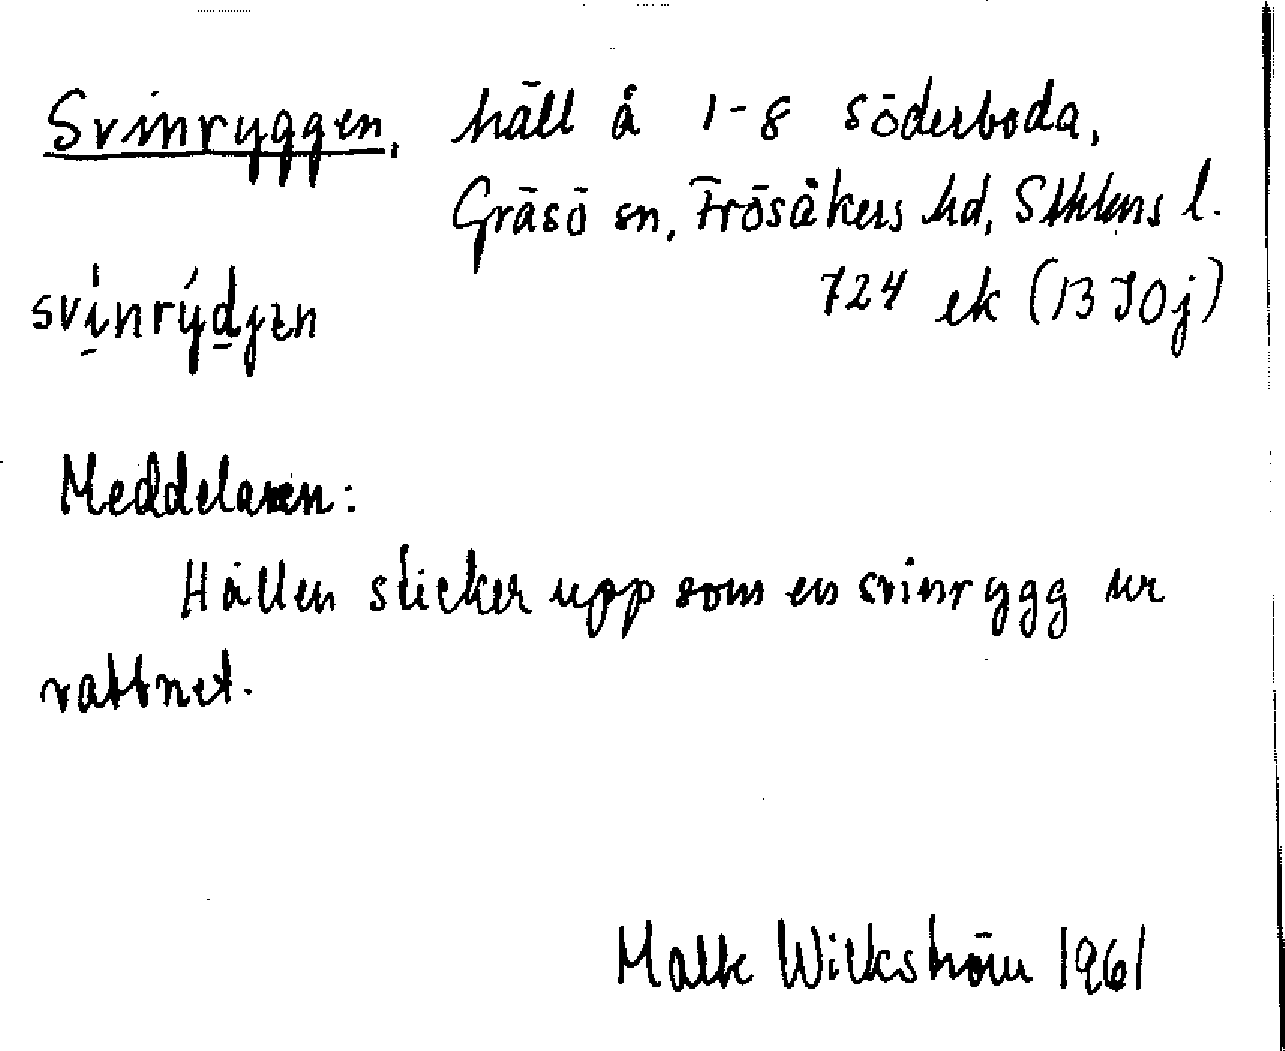 Svinryggen, häll å 1-8 Söderboda,
Gräsö sn, Frösåkers hd, Sthlms l.
724 ek (13 I 0j)
Meddelaren:
Hällen sticker upp som en svinrygg ur
vattnet.
Malte Wilkström 1961